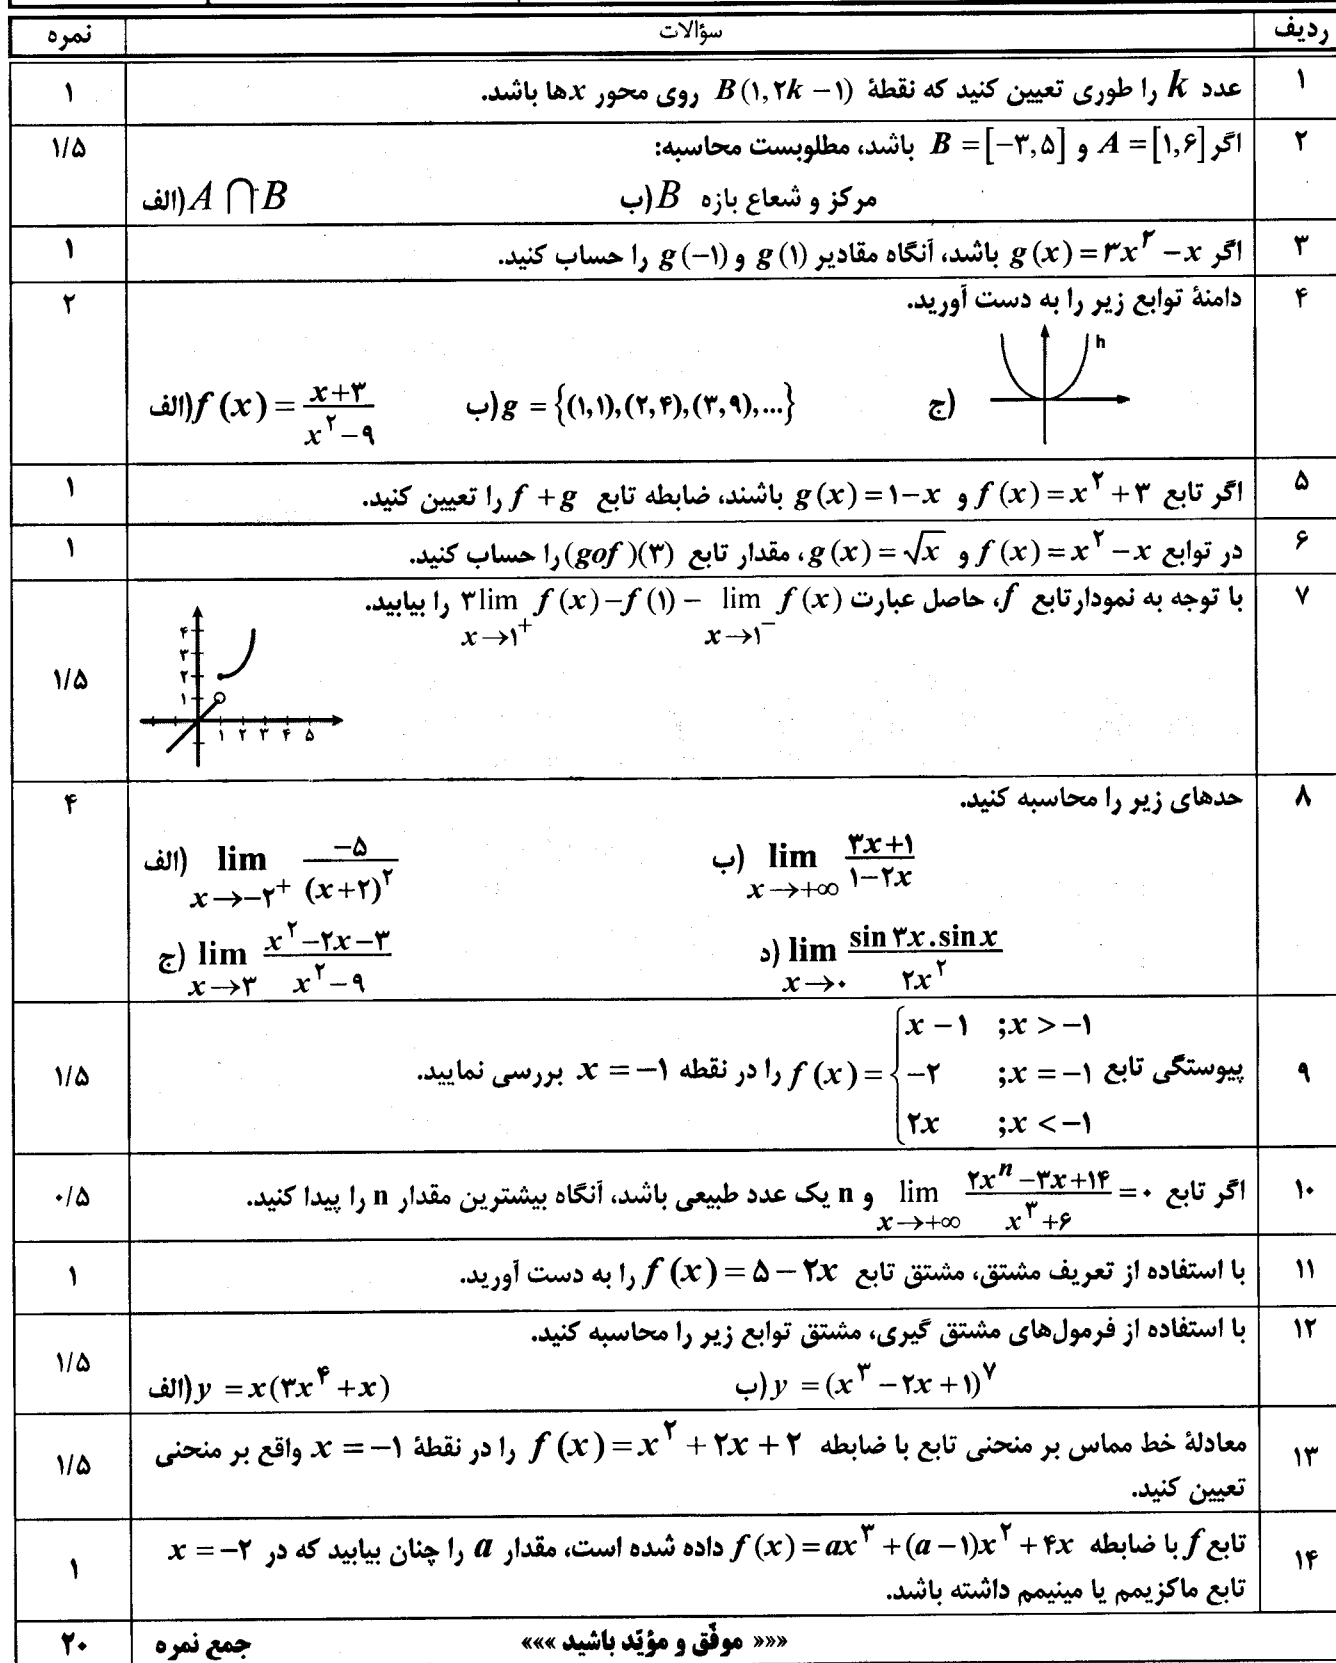 ردیف سؤالات نمره
۱ عدد k را طوری تعیین کنید که نقطهٔ B(۱,۲k −۱) روی محور xها باشد. ۱
۲ اگر A=[۱,۶] و B=[−۳,۵] باشد، مطلوبست محاسبه: ۱/۵
الف) A ⋂ B ب) مرکز و شعاع بازه B
۳ اگر g(x)=۳x^۲ −x باشد، آنگاه مقادیر g(۱) و g(−۱) را حساب کنید. ۱
۴ دامنهٔ توابع زیر را به دست آورید. ۲
الف) f(x)=(x+۳)/(x^۲−۹) ب) g={(۱,۱),(۲,۴),(۳,۹),...} ج) h
۵ اگر تابع f(x)=x^۲+۳ و g(x)=۱−x باشند، ضابطه تابع f+g را تعیین کنید. ۱
۶ در توابع f(x)=x^۲−x و g(x)=√x، مقدار تابع (gof)(۳) را حساب کنید. ۱
۷ با توجه به نمودارتابع f، حاصل عبارت ۳lim f(x)−f(۱)− lim f(x) را بیابید. ۱/۵
x→۱^+ x→۱^−
۴
۳
۲
۱
۱ ۲ ۳ ۴ ۵
۸ حدهای زیر را محاسبه کنید. ۴
الف) lim x→−۲^+ −۵/(x+۲)^۲ ب) lim x→+∞ (۳x+۱)/(۱−۲x)
ج) lim x→۳ (x^۲−۲x−۳)/(x^۲−۹) د) lim x→۰ (sin ۳x.sin x)/(۲x^۲)
۹ پیوستگی تابع f(x)={ x−۱ ;x>−۱
−۲ ;x=−۱
۲x ;x<−۱ را در نقطه x=−۱ بررسی نمایید. ۱/۵
۱۰ اگر تابع lim x→+∞ (۲x^n−۳x+۱۴)/(x^۳+۶)=۰ و n یک عدد طبیعی باشد، آنگاه بیشترین مقدار n را پیدا کنید. ۰/۵
۱۱ با استفاده از تعریف مشتق، مشتق تابع f(x)=۵−۲x را به دست آورید. ۱
۱۲ با استفاده از فرمول‌های مشتق گیری، مشتق توابع زیر را محاسبه کنید. ۱/۵
الف) y=x(۳x^۴+x) ب) y=(x^۳−۲x+۱)^۷
۱۳ معادلهٔ خط مماس بر منحنی تابع با ضابطه f(x)=x^۲+۲x+۲ را در نقطهٔ x=−۱ واقع بر منحنی ۱/۵
تعیین کنید.
۱۴ تابع f با ضابطه f(x)=ax^۳+(a−۱)x^۲+۴x داده شده است، مقدار a را چنان بیابید که در x=−۲ ۱
تابع ماکزیمم یا مینیمم داشته باشد.
««« موفّق و مؤیّد باشید »»» جمع نمره ۲۰